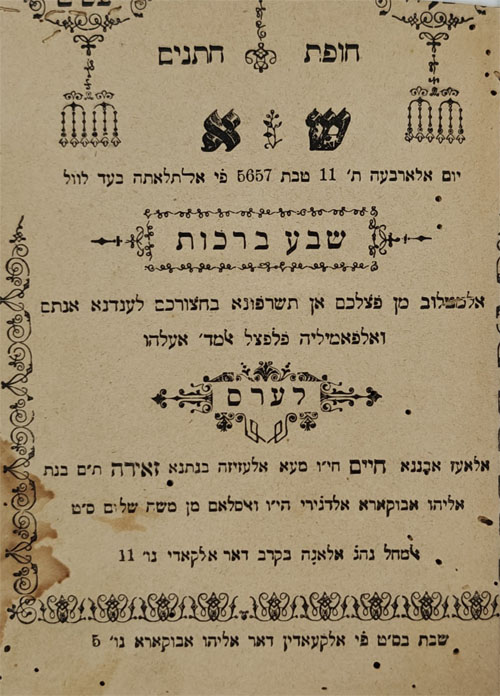 חופת חתנים
ש א
יום אלארבעה ת׳ 11 טבת 5657 פי אלתלאתה בעד לוול
שבע ברכות
אלמטלוב מן פצלכם אן תשרפונא בחצורכם לענדנא אנתם
ואלפאמיליה פלפצל אעלהו
לערס
אלאעז אבננא חיים הי״ו מעא אלעזיזה בנתנא זאירה ת״ם בנת
אליהו אבוקארא אלדזירי הי״ו ואסלאם מן משה שלום ס״ט
נהג אלאנה בקרב דאר אלקאדי נו׳ 11
שבת בס״ט פי אלקעאדין דאר אליהו אבוקארא נו׳ 5